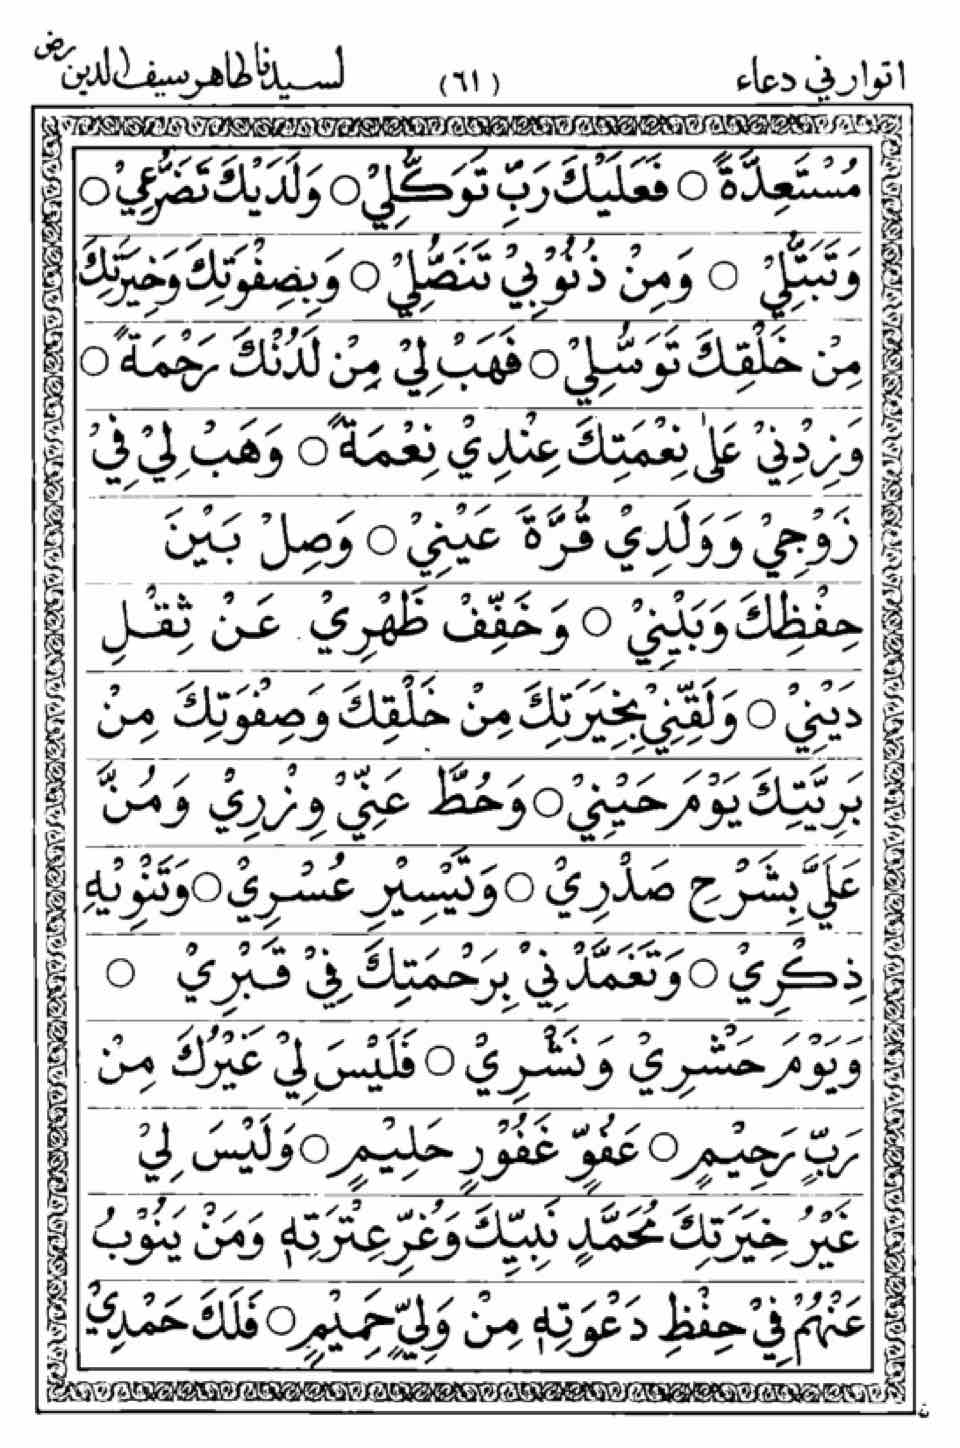 اتوار ني دعاء (٦١) لسيدنا طاهر سيف الدين رض
مُسْتَعِدَّةً ○ فَعَلَيْكَ رَبِّ تَوَكُّلِيْ ○ وَلَدَيْكَ تَضَرُّعِيْ ○
وَتَبَتُّلِيْ ○ وَمِنْ ذُنُوْبِيْ تَنَصُّلِيْ ○ وَبِصِفْوَتِكَ وَخِيَرَتِكَ
مِنْ خَلْقِكَ تَوَسُّلِيْ ○ فَهَبْ لِيْ مِنْ لَدُنْكَ رَحْمَةً ○
وَزِدْنِيْ عَلٰى نِعْمَتِكَ عِنْدِيْ نِعْمَةً ○ وَهَبْ لِيْ فِيْ
زَوْجِيْ وَوَلَدِيْ قُرَّةَ عَيْنِيْ ○ وَصِلْ بَيْنَ
حِفْظِكَ وَبَيْنِيْ ○ وَخَفِّفْ ظَهْرِيْ عَنْ ثِقْلِ
دَيْنِيْ ○ وَلَقِّنِيْ بِخِيَرَتِكَ مِنْ خَلْقِكَ وَصِفْوَتِكَ مِنْ
بَرِيَّتِكَ يَوْمَ حَيْنِيْ ○ وَحُطَّ عَنِّيْ وِزْرِيْ وَمُنَّ
عَلَيَّ بِشَرْحِ صَدْرِيْ ○ وَتَيْسِيْرِ عُسْرِيْ ○ وَتَنْوِيْهِ
ذِكْرِيْ ○ وَتَغَمَّدْنِيْ بِرَحْمَتِكَ فِيْ قَبْرِيْ ○
وَيَوْمَ حَشْرِيْ وَنَشْرِيْ ○ فَلَيْسَ لِيْ غَيْرُكَ مِنْ
رَبٍّ رَحِيْمٍ ○ عَفُوٍّ غَفُوْرٍ حَلِيْمٍ ○ وَلَيْسَ لِيْ
غَيْرُ خِيَرَتِكَ مُحَمَّدٍ نَبِيِّكَ وَغُرِّ عِتْرَتِهٖ وَمَنْ يَنُوْبُ
عَنْهُمْ فِيْ حِفْظِ دَعْوَتِهٖ مِنْ وَلِيٍّ حَمِيْمٍ ○ فَلَكَ حَمْدِيْ